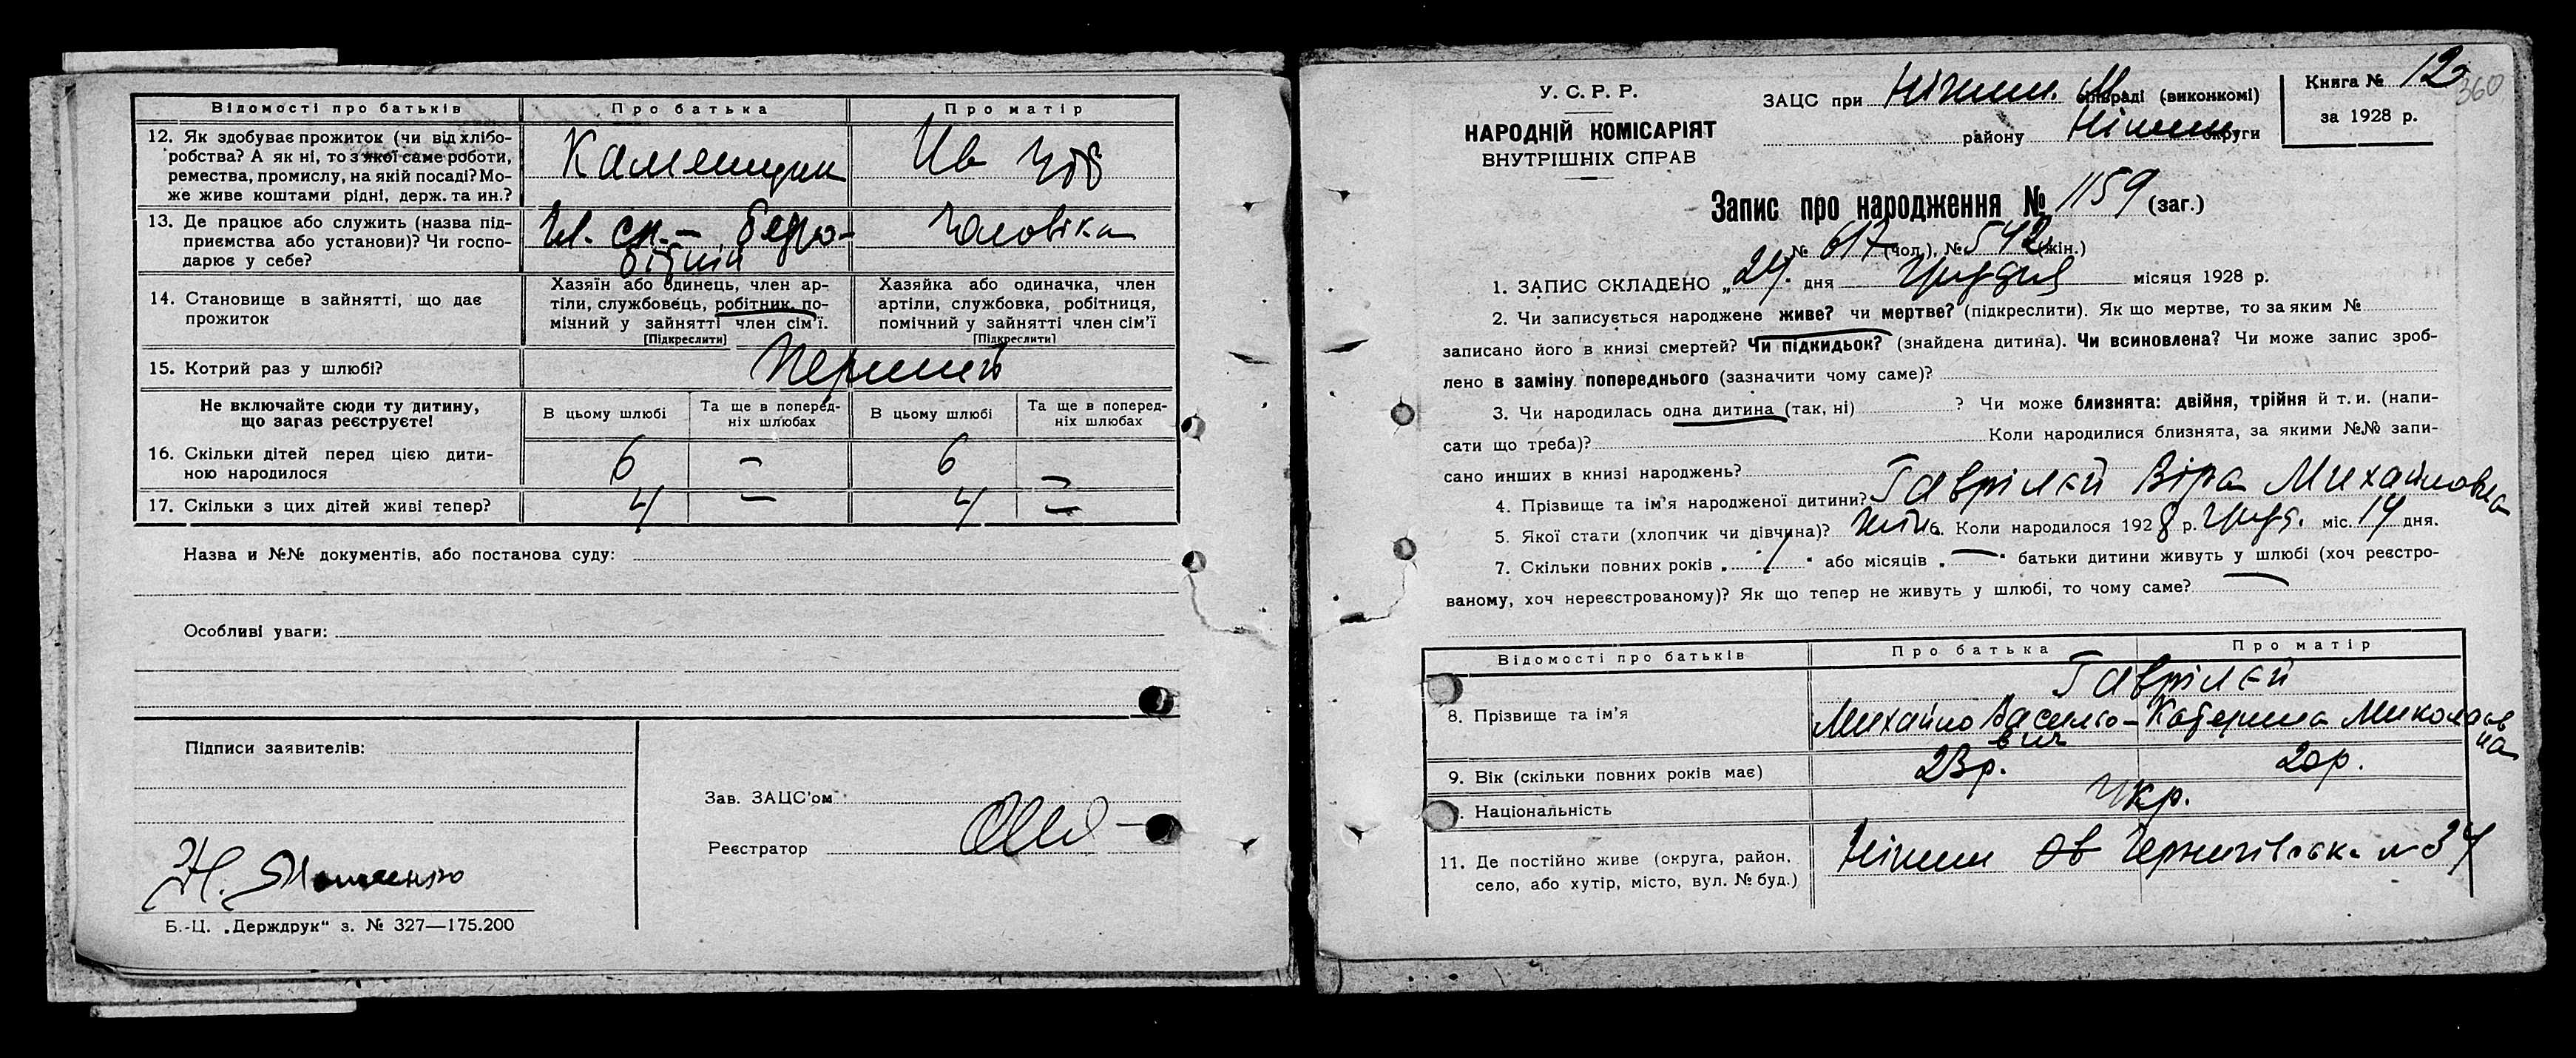 Відомості про батьків Про батька Про матір
12. Як здобуває прожиток (чи від хлібо-
робства? А як ні, то з якої саме роботи,
ремества, промислу, на якій посаді? Мо-
же живе коштами рідні, держ. та ин.?
Каменщик
13. Де працює або служить (назва під-
приємства або установи)? Чи госпо-
дарює у себе?
чоловіка
14. Становище в зайнятті, що дає
прожиток
Хазяїн або одинець, член ар-
тіли, службовець, робітник, по-
мічний у зайнятті член сім'ї.
[Підкреслити]
Хазяйка або одиначка, член
артіли, службовка, робітниця,
помічний у зайнятті член сім'ї
[Підкреслити]
15. Котрий раз у шлюбі? Перший
Не включайте сюди ту дитину,
що загаз реєструєте!
В цьому шлюбі Та ще в поперед-
ніх шлюбах В цьому шлюбі Та ще в поперед-
ніх шлюбах
16. Скільки дітей перед цією дити-
ною народилося 6 — 6 —
17. Скільки з цих дітей живі тепер? 4 — 4 —
Назва и №№ документів, або постанова суду:
Особливі уваги:
Підписи заявителів:
Зав. ЗАЦС'ом
Реєстратор
Б.-Ц. „Держдрук“ з. № 327—175.200
У. С. Р. Р.
НАРОДНІЙ КОМІСАРІЯТ
ВНУТРІШНІХ СПРАВ
ЗАЦС при Ніжин. М. сільраді (виконкомі)
району Ніжин. округи
Книга № 12
за 1928 р.
360
Запис про народження № 1159 (заг.)
№ 617 (чол.), № 542 (жін.)
1. ЗАПИС СКЛАДЕНО „24“ дня Грудня місяця 1928 р.
2. Чи записується народжене живе? чи мертве? (підкреслити). Як що мертве, то за яким №
записано його в книзі смертей? Чи підкидьок? (знайдена дитина). Чи всиновлена? Чи може запис зроб-
лено в заміну попереднього (зазначити чому саме)?
3. Чи народилась одна дитина (так, ні) ? Чи може близнята: двійня, трійня й т. и. (напи-
сати що треба)? Коли народилися близнята, за якими №№ запи-
сано инших в книзі народжень?
4. Прізвище та ім'я народженої дитини? Гаврілєй Віра Михайловна
5. Якої стати (хлопчик чи дівчина)? жін. Коли народилося 1928 р. Груд. міс. 14 дня.
7. Скільки повних років „ “ або місяців „—“ батьки дитини живуть у шлюбі (хоч реєстро-
ваному, хоч нереєстрованому)? Як що тепер не живуть у шлюбі, то чому саме?
Відомості про батьків Про батька Про матір
Гаврілєй
8. Прізвище та ім'я Михайло Васильо-
вич Катерина Миколаєв
на
9. Вік (скільки повних років має) 23р. 20р.
Національність Укр.
11. Де постійно живе (округа, район,
село, або хутір, місто, вул. № буд.)
Ніжин Ов Чернигівська № 34